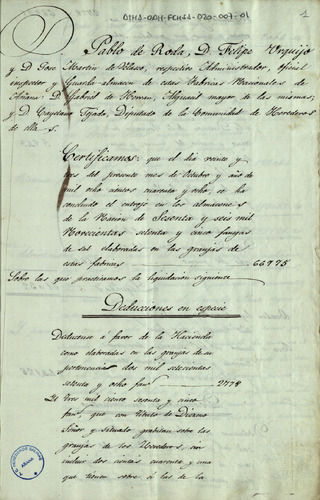 ATHA-DAH-FCHSA-020-007-01
1
Pablo de Rola, D. Felipe Urquijo
y D. Jose Martin de Velasco, respective Administrador, oficial
inspector y Guarda almacen de estas Fabricas Nacionales de
Añana: D. Gabriel de Herran, Alguacil mayor de las mismas;
y D. Cayetano Tejada, Diputado de la Comunidad de Herederos
de ellas.
Certificamos: que el dia veinte y
tres del presente mes de Octubre y año de
mil ocho cientos cuarenta y ocho, se ha
concluido el entroje en los almacenes
de la Nacion de Sesenta y seis mil
Novecientas setenta y cinco fanegas
de sal elaboradas en las granjas de
estas fabricas 66975
Sobre las que practicamos la liquidacion siguiente
Deducciones en especie
Deducense á favor de la Hacienda
como elaboradas en las granjas de su
pertenencia dos mil setecientas
setenta y ocho fan.s 2778
Yt. tres mil ciento sesenta y cinco
fan.s que con titulo de Diezmo
Señor y situado gravitan sobre las
granjas de los Herederos, sin
incluir dos cientas cuarenta y una
que tienen sobre si las de la